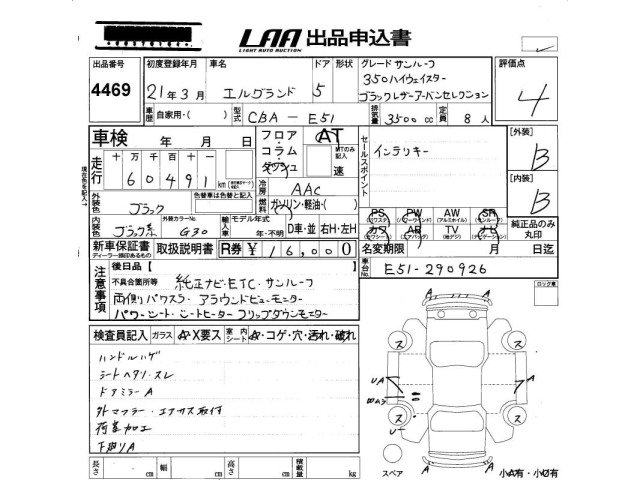 LAA 出品申込書
LIGHT AUTO AUCTION
出品番号 4469
初度登録年月 21年3月
車名 エルグランド
ドア 5
形状
グレード サンルーフ
350ハイウェイスター
ブラックレザーアーバンセレクション
評価点 4
車歴 自家用・( )
型式 CBA-E51
排気量 3500cc
定員 8人
車検 年 月 日
フロア・コラム・ダッシュ
AT
MTのみ記入
速
セールスポイント
インテリキー
[外装] B
[内装] B
走行 十 万 千 百 十 一
60491 km
冷房 AAC
燃料 ガソリン・軽油・( )
外装色 ブラック
色替車は色替と記入
内装色 ブラック系
外装カラーNo. G30
輸入車 モデル年式
年・不明
D車・並 右H・左H
PS PW AW SR
カワ AB TV ナビ
純正品のみ丸印
新車保証書
ディーラー捺印あるもの
取扱説明書
R券 ¥16,000
名変期限 月 日迄
車台No E51-290926
ロック車
注意事項
後日品[ ]
不具合箇所等 純正ナビ・ETC・サンルーフ
両側パワスラ・アラウンドビューモニター
パワーシート・シートヒーター フリップダウンモニター
検査員記入 ガラス A・X要ス 室内シート A・コゲ・穴・汚れ・破れ
ハンドルハゲ
シートヘタリ・スレ
ドアミラーA
外マフラー・エアサス取付
荷室加工
下廻りA
長さ cm 幅 cm 高さ cm 積載量 kg
ス
ス
ス
ス
UA
A
A
A
A
A
U
スペア
小A有・小U有